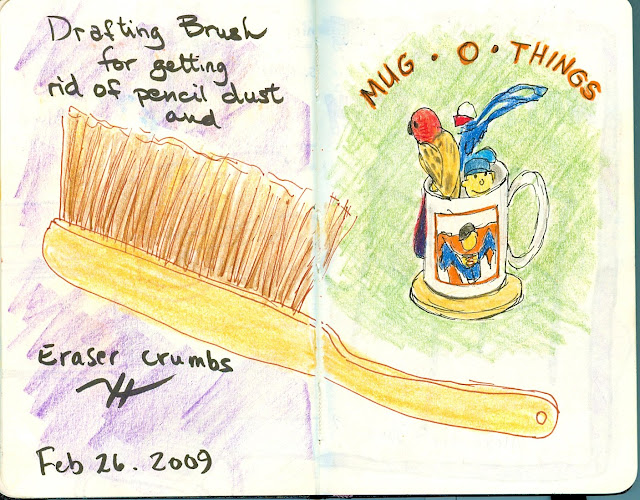 Drafting Brush
for getting
rid of pencil dust
and
Eraser crumbs
Feb 26. 2009
MUG · O · THINGS